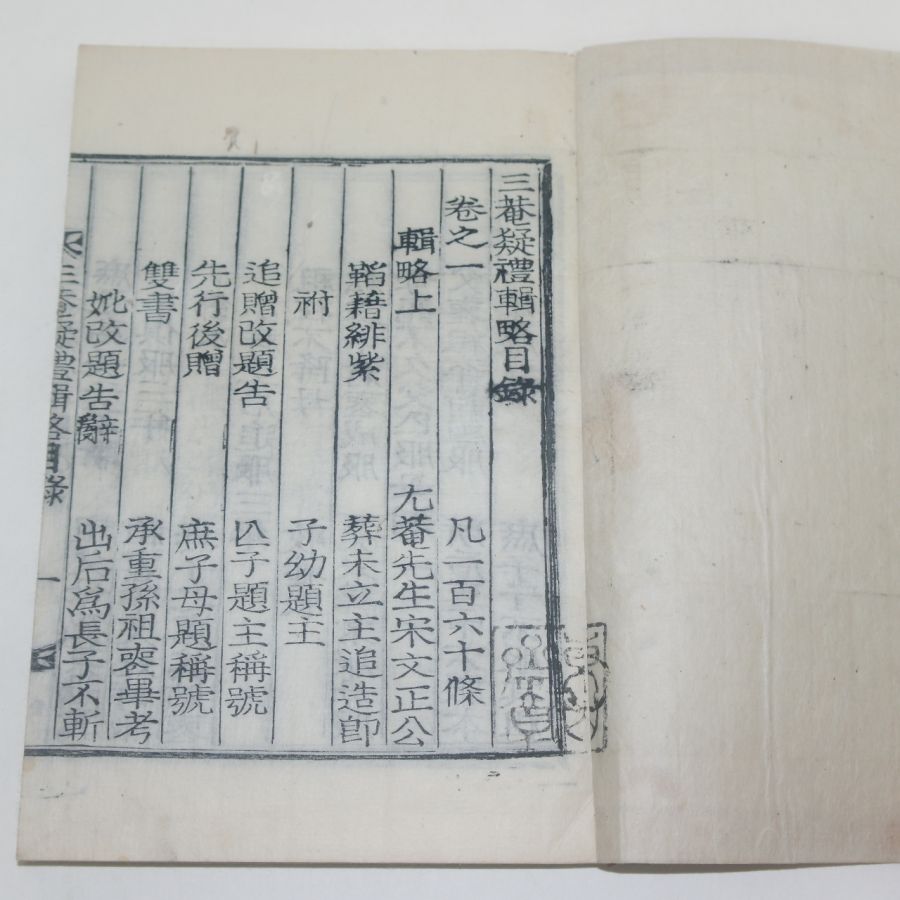 三菴疑禮輯略目錄
卷之一 凡一百六十條
輯略上 尤菴先生宋文正公
韜藉緋紫 葬未立主追造卽
祔 子幼題主
追贈改題告 亾子題主稱號
先行後贈 庶子母題稱號
雙書 承重孫祖喪畢考
妣改題告辭 出后爲長子不斬
三菴疑禮輯略目錄 一